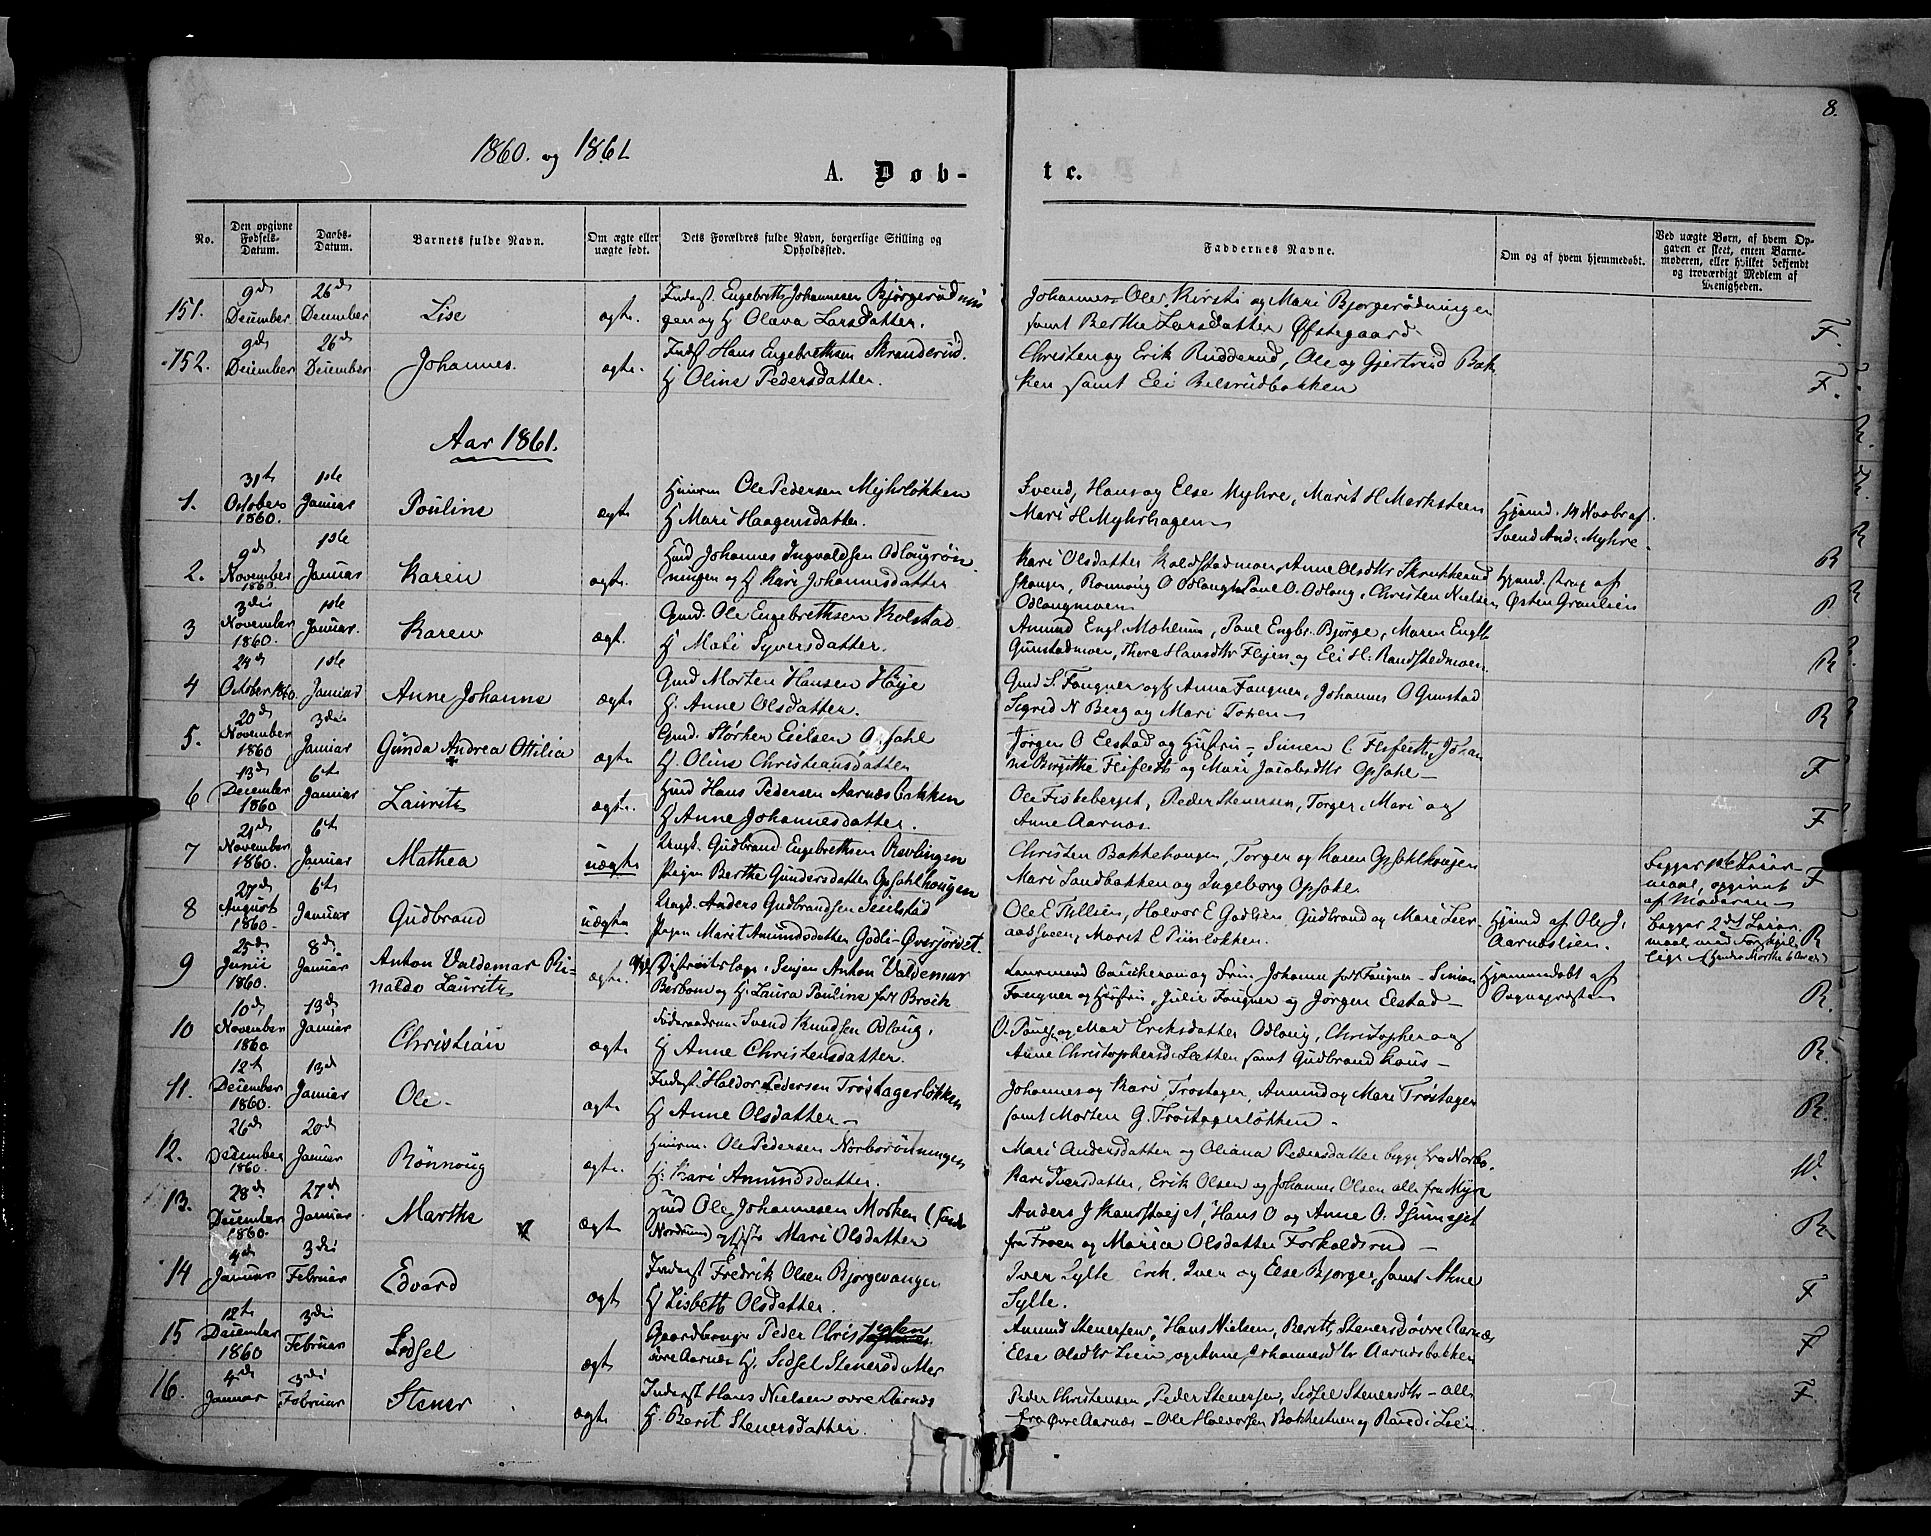 8.
1860. og 1861
A. Døb-
te.
No.
Den opgivne Fødsels-Datum.
Daabs-Datum.
Barnets fulde Navn.
Om ægte eller uægte født.
Dets Forældres fulde Navn, borgerlige Stilling og Opholdssted.
Faddernes Navne.
Om og af hvem hjemmedøbt.
Ved uægte Børn, af hvem Opgaven er skeet, enten Barnemoderen, eller hvilket bekjendt og troværdigt Medlem af Menigheden.
151. 9de December 26de December Lise ægte Inderst. Engebreth Johannesen Bjørgerødnin
gen og H Olava Larsdatter. Johannes Ole Kirsti og Mari Bjørgerødningen
samt Berthe Larsdatter Øfstegaard F.
152. 9de December 26de December Johannes. ægte Inderst Hans Engebrethsen Skranderud.
H Oline Pedersdatter. Christen og Erik Rudderud, Ole og Gjertrud Bak-
ken samt Eli Belsrudbakken F.
Aar 1861.
1. 31te October 1860. 1ste Januar Pouline ægte Huusm Ole Pedersen Myhrløkken
H Mari Haagensdatter. Svend, Hans og Else Myhre, Marit H Merksteen
Mari H Myhrhagen Hjemd. 14 Novbr af
Svend And. Myhre R
2. 9de November 1860. 1ste Januar Karen ægte. Huusm Johannes Ingvaldsen Odlougrøn
ningen og H Kari Johannesdatter Kari Olsdatter Koldstadmoen, Anne Olsdtr Skrukkerud
Skougen, Ronnoug O Odlough Poul O. Odloug, Christen Nielsen
Odlougmoen Hjemd. strax af
Østen Graulien R
3 3die November 1860. 1ste Januar. Karen ægte. Gmd. Ole Engebrethsen Kolstad
H Mari Syversdatter. Amund Engl. Mæhlum, Poul Engbr. Bjørge, Maren Englh
Gunstadmoen, Thore Hansdtr Flejen og Eli H. Randstedmoen. R
4 24de October 1860. 1ste Januar Anne Johanne ægte Gmd Morten Hansen Høije
H. Anne Olsdatter. Gmd S. Faugner og H Anna Faugner, Johannes O Gunstad
Sigrid N Berg og Mari Toxen R
5. 20de November 1860 3die Januar Gunda Andrea Ottilia ægte Gmd. Størker Eielsen Opsahl
H. Oline Christiansdatter Jørgen O Elstad og Hustru - Simen C Flifleth, Johan
ne Birgithe Flifleth og Mari Jacobsdtr Opsahl - F
6 13de December 1860 6te Januar Lauritz ægte. Huusm Hans Pedersen Aarnæsbakken
H Anne Johannesdatter. Ole Fiskeberget, Peder Stenersen, Torger, Mari og
Anne Aarnæs. F
7 21de November 1860. 6te Januar Mathea uægte Ungk. Gudbrand Engebrethsen Revlingen
Pigen Berthe Gundersdatter Opsahlhougen Christen Bakkehougen, Torger og Karen Opsahlhougen
Mari Sandbakken og Ingeborg Opsahl. Begges 1ste Leier-
maal, opgivet
af Moderen F
8 27de August 1860. 6te Januar Gudbrand uægte Ungk. Anders Gudbrandsen Isielstad
Pigen Marit Amundsdatter Godli-Øverjordet. Ole E Tellien, Halvor E Godlien, Gudbrand og Mari Leer-
aasSveen, Marit E Piinløkken. Hjemd af Ole J.
Aarneslien. Begges 2det Leier-
maal med forskjel-
lige R
9 25de Junii 1860. 8de Januar Anton Valdemar Ri-
naldo Lauritz ægte. Districtslæge, Senjen Anton Valdemar
Berbom og H. Laura Pauline født Brock Simon
Faugner og Hustru, Julie Faugner og Jørgen Elstad - Hjemmedøbt af
Sognepræsten R.
10 10de November 1860. 13de Januar Christian ægte Føderaadsm. Svend Knudsen Odloug,
H Anne Christensdatter. O. Poul og Mari Eriksdatter Odloug, Christopher og
Anne Christophersd. Lætten samt Gudbrand Hous - R.
11. 12te December 1860. 13de Januar Ole ægte Inderst Haldor Pedersen Trøstagerløkken
H Anne Olsdatter - Johannes og Kari Trøstager, Amund og Mari Trøstager
samt Morten G. Trøstagerløkken - R.
12. 26de December 1860. 20de Januar Rønnoug ægte. Huusm. Ole Pedersen Norborødningen
H. Kari Amundsdatter. Mari Andersdatter og Oliana Pedersdatter begge fra Norbo.
Kari Iversdatter, Erik Olsen og Johannes Olsen alle fra Myre W.
13. 28de December 1860. 27de Januar Marthe ægte Huusm Ole Johannesen Morken (søndr
Nordrum) og H Mari Olsdatter Anders J Kanstvejet, Hans O og Anne O.
fra Froen og Marie Olsdatter Forkaldsrud - R
14 4de Januar 3die Februar Edvard ægte Inderst Fredrik Olsen Bjørgevangen
H Lisbeth Olsdatter. Iver Sylte Erik, Iver og Else Bjørge, samt Anne
Sylte. F
15 12te December 1860 3die Februar Sidsel ægte Gaardbruger Peder Christensen
øvre Aarnæs H. Sidsel Stenersdatter Amund Stenersen, Hans Nielsen, Berith Stenersd øvre Aarnæs
Else Olsdtr Lien og Anne Johannesdtr Aarnæsbakken F
16. 4de Januar 3die Februar Stener ægte Inderst Hans Nielsen øvre Aarnæs
H. Berit Stenersdatter. Peder Christensen, Peder Stenersen, Sidsel Stenersdtr - alle
fra Øvre Aarnæs - Ole Halvorsen Bakkestuen og Randi Lien. F.